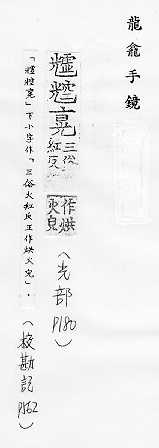 龍龕手鏡
三俗
紅反
作烘
火皃
(光部 P180)
下小字作「三俗火紅反正作烘火皃」。
(校勘記 P162)